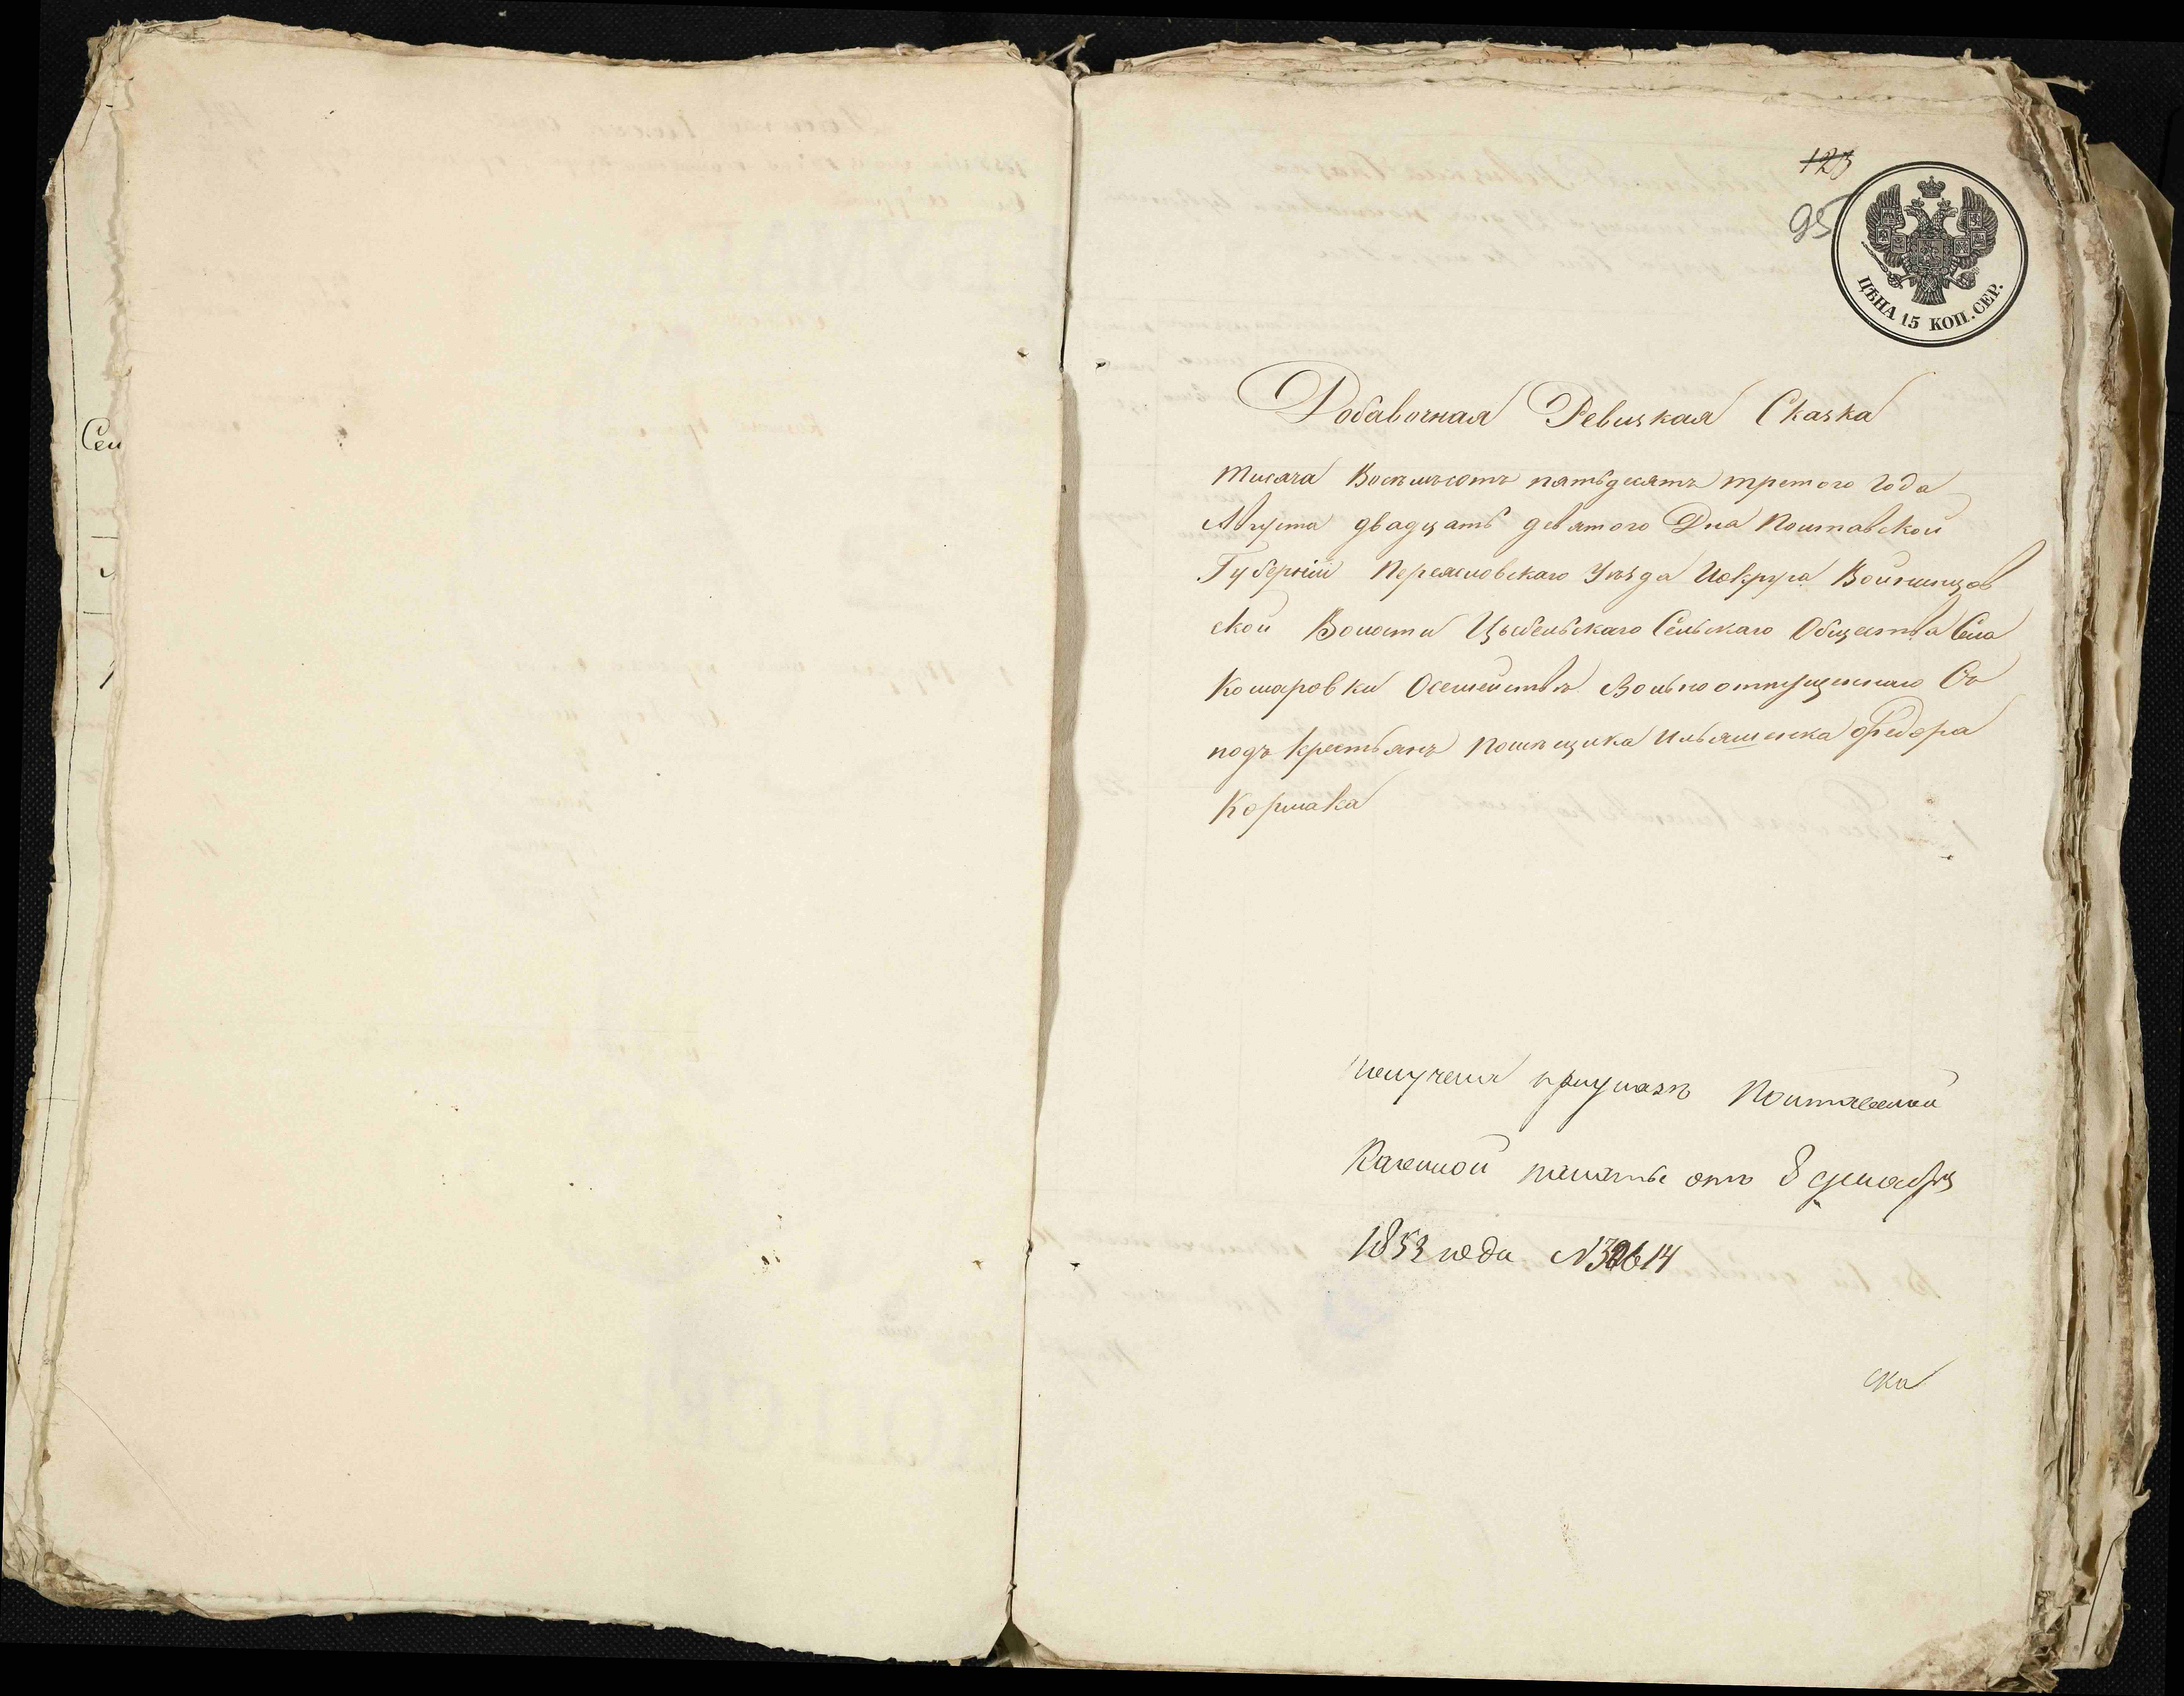 Сем
123
95
ЦѢНА 15 КОП. СЕР.
Добавочная Ревизкая Сказка
Тисяча Восѣмьсотъ пятьдесятъ третого Года
Августа двадцать девятого Дня Полтавской
Губерніи Переясловскаго Уѣзда Иокруга Войтинцов
ской Волости Цыбельскаго Сельскаго Общества Села
Комаровки Осемействѣ Вольноотпущеннаго Съ
подъ Крестьянъ Помѣщика Ильяшенка Федора
Кормака
Полтавской
Казенной палаты отъ 8 декабря
1853 года №32614
ска